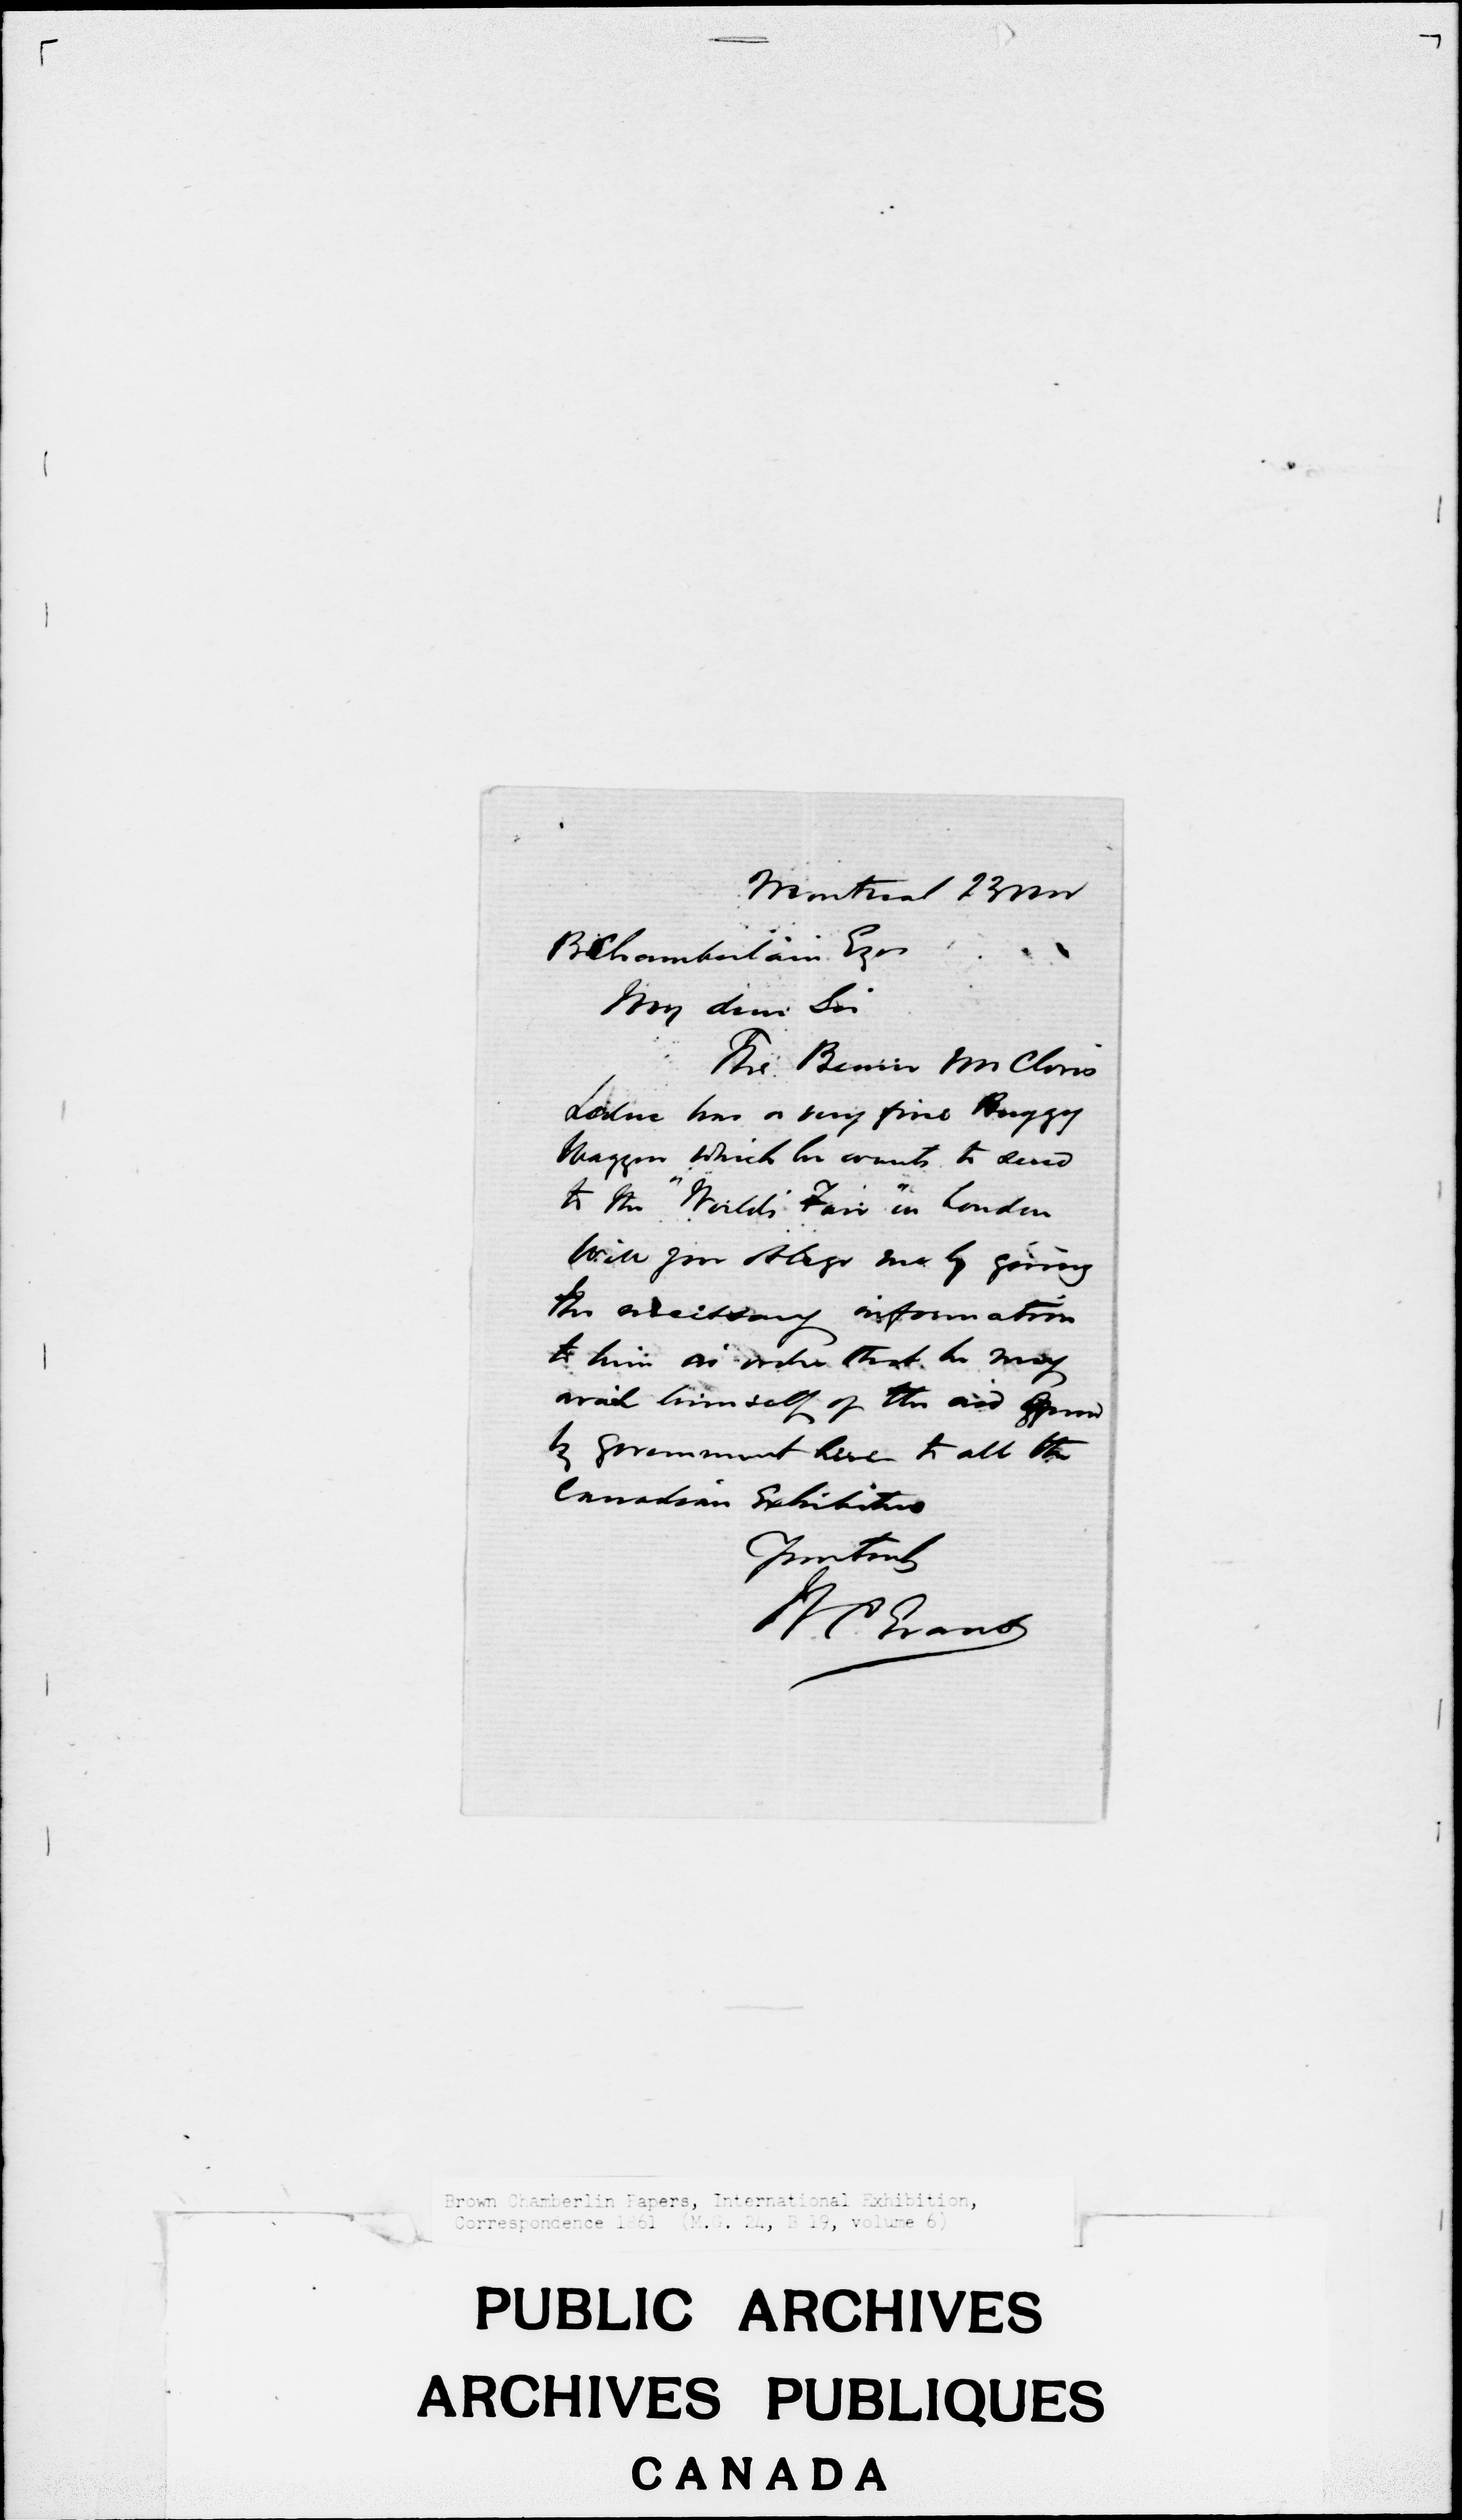 Montreal 23 Nov
B Chamberlain Esqr
My dear Sir
The Bearer Mr Clovis
Leduc has a very fine Buggy
Waggon which he wants to send
to the "World's Fair" in London
Will you oblige me by giving
the necessary information
to him in order that he may
avail himself of the aid given
by government here to all the
Canadian Exhibitors
Yours truly
W Evans
Brown Chamberlin Papers, International Exhibition,
Correspondence 1861 (M.G. 24, B 19, volume 6)
PUBLIC ARCHIVES
ARCHIVES PUBLIQUES
CANADA